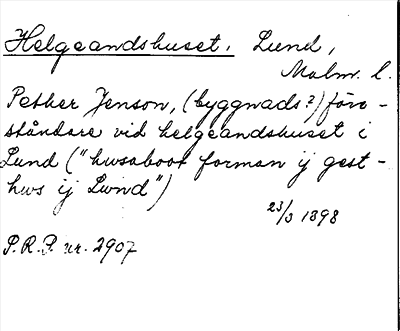 Helgeandshuset. Lund,
Malm. l.
Pether Jenson, (byggnads?) före-
ståndare vid helgeandshuset i
Lund ("husaboot forman ij gest-
hws ij Lwnd")
23/3 1398
P.R.P. nr. 2907